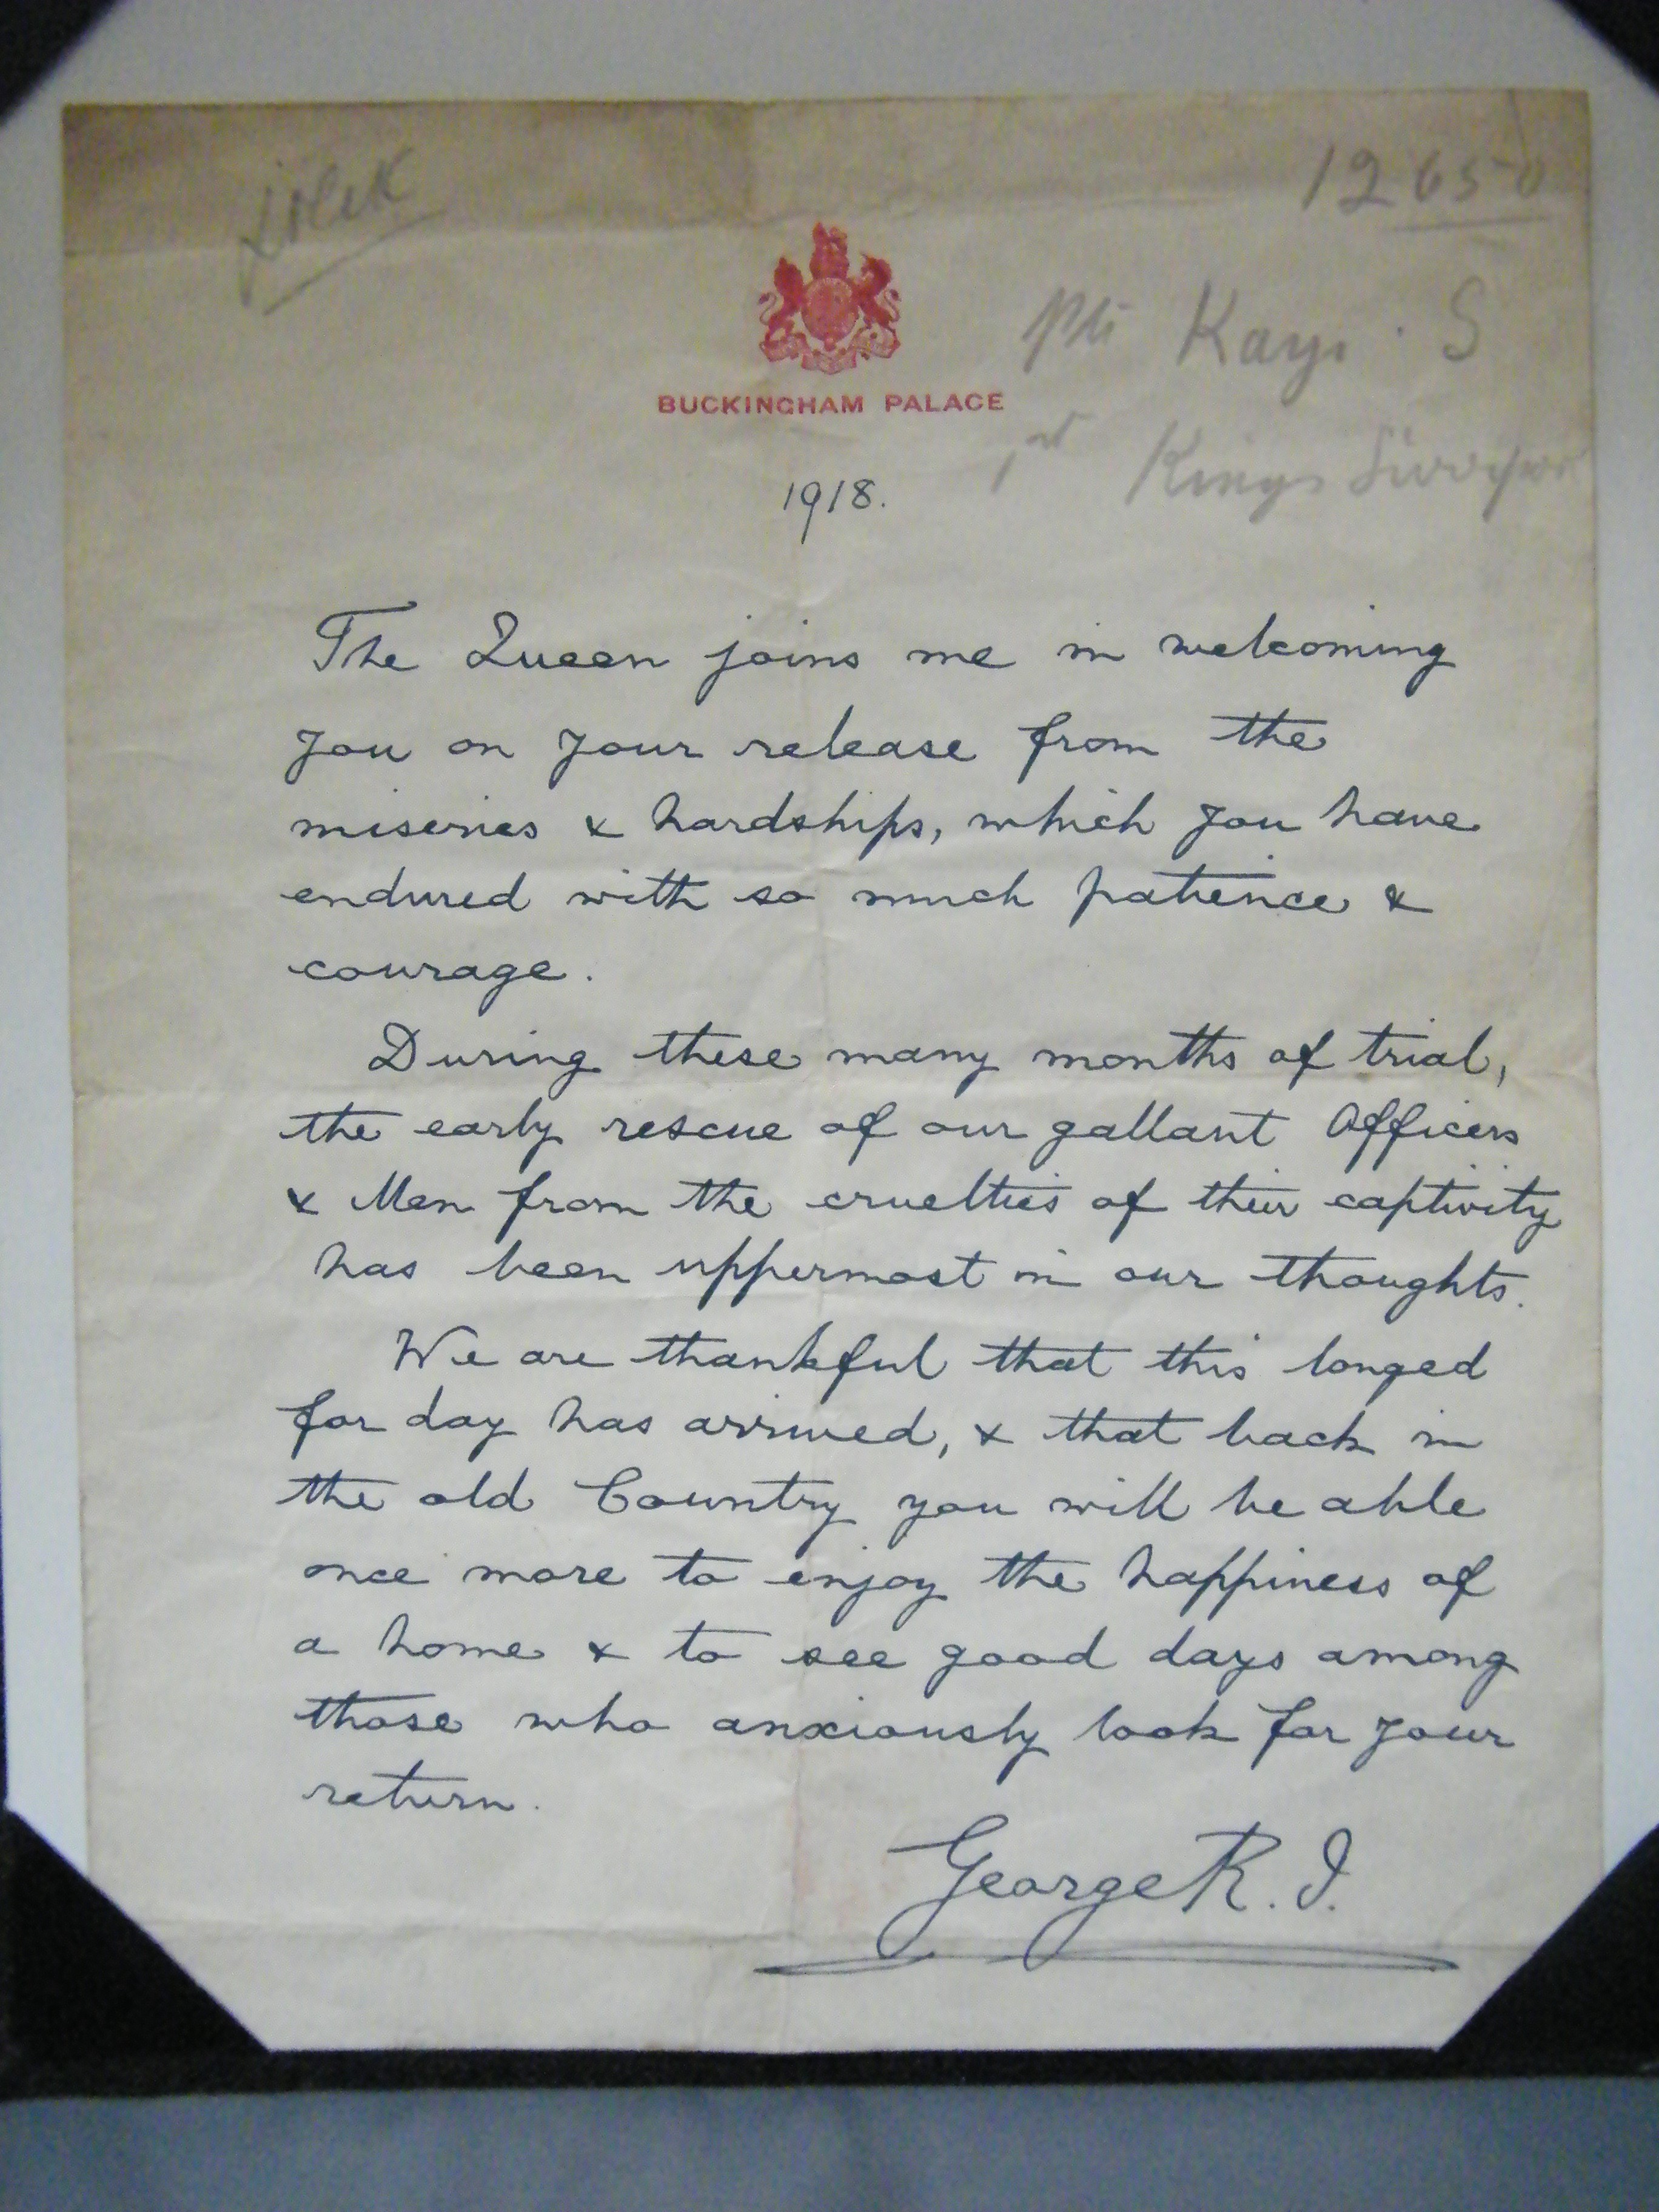 12650
Pte Kay. S
BUCKINGHAM PALACE
1st Kings Liverpool
1918.
The Queen joins me in welcoming
you on your release from the
miseries & hardships, which you have
endured with so much patience &
courage.
During these many months of trial,
the early rescue of our gallant Officers
& Men from the cruelties of their captivity
has been uppermost in our thoughts.
We are thankful that this longed
for day has arrived, & that back in
the old Country you will be able
once more to enjoy the happiness of
a home & to see good days among
those who anxiously look for your
return.
George R. I.